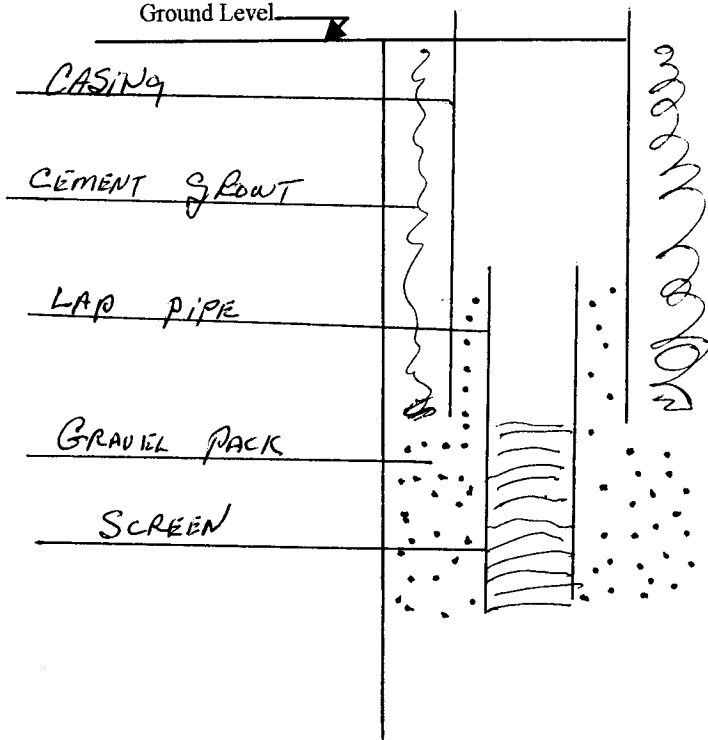 Ground Level
CASING
CEMENT GROUT
LAP PIPE
GRAVEL PACK
SCREEN